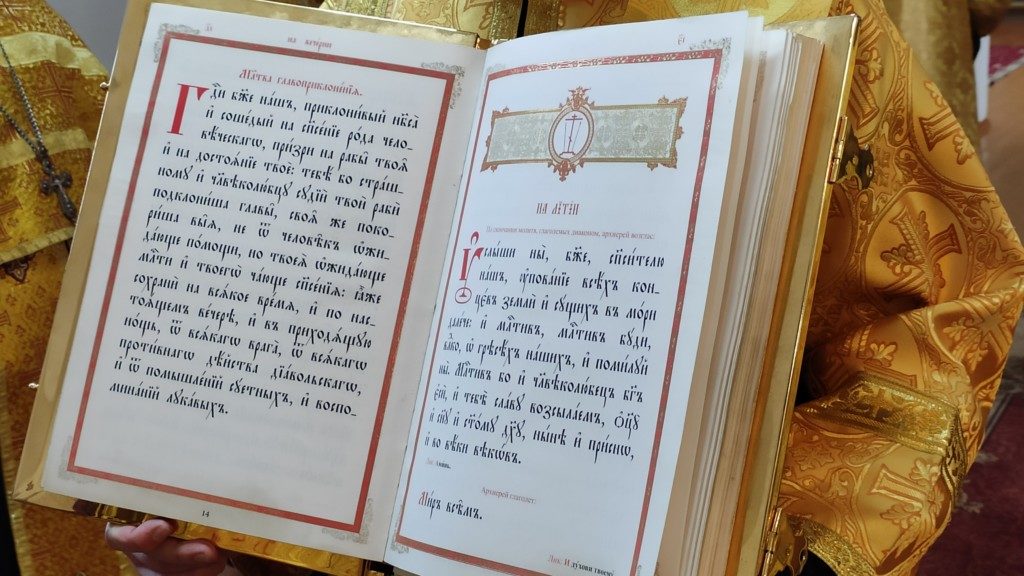 на вечерни
Мл҃тва главоприклоне́нїѧ.
Гдⷭ҇и бж҃е на́шъ, приклони́вый нб҃са̀
и҆ соше́дый на сп҃се́нїе ро́да чело-
вѣ́ческагѡ, при́зри на рабы̑ твоѧ̑
и҆ на достоѧ́нїе твоѐ: тебѣ́ бо стра́ш-
ному и҆ чл҃вѣколю́бцу сꙋдїѝ твоѝ рабѝ
подклони́ша главы̑, своѧ̑ же поко-
ри́ша вы̑ѧ, не ѿ человѣ̑къ ѡ҆жи-
да́юще по́мощи, но твоеѧ̀ ѡ҆жида́юще
мл҃ти и҆ твоегѡ̀ ча́юще сп҃се́нїѧ: ꙗ҆̀же
сохранѝ на всѧ́кое вре́мѧ, и҆ по нас-
тоѧ́щемъ ве́черѣ, и҆ въ приходѧ́щꙋю
но́щь, ѿ всѧ́кагѡ врага̀, ѿ всѧ́кагѡ
проти́внагѡ дѣ́йства дїа́вольскагѡ,
и҆ ѿ помышле́нїй сꙋ́етныхъ, и҆ воспо-
мина́нїй лꙋка́выхъ.
14
на литїи
По окончании молитв, глаголемых диаконом, архиерей возглас:
Оу҆слы́ши ны̀, бж҃е, сп҃си́телю
на́шъ, ᲂу҆пова́нїе всѣ́хъ кон-
цє́въ землѝ и҆ сꙋ́щихъ въ мо́ри
дале́че: и҆ мл҃тивъ, мл҃тивъ бꙋ́ди,
вл҃ко, ѡ҆ грѣсѣ́хъ на́шихъ, и҆ поми́лꙋй
ны̀. Мл҃тивъ бо и҆ чл҃вѣколю́бецъ бг҃ъ
є҆сѝ, и҆ тебѣ̀ сла́вꙋ возсыла́емъ, ѻ҆ц҃ꙋ̀
и҆ сн҃ꙋ и҆ ст҃о́мꙋ дх҃ꙋ, ны́нѣ и҆ при́снѡ,
и҆ во вѣ́ки вѣкѡ́въ.
Лик: Аминь.
Архиерей глаголет:
Ми́ръ всѣ̑мъ.
Лик: И духови твоему.